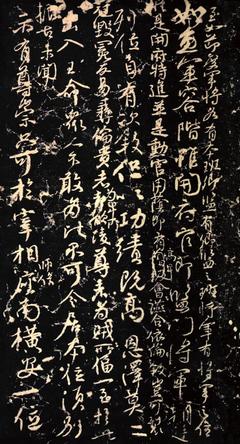 至如節度軍將各有本班卿監有卿監之班將軍有將軍之位
如魚軍容階雖開府官即監門將軍朝廷
縱是開府特進並是勳官用蔭即有高卑會讌合依倫敘豈可裂
列位自有次敘但以功績既高恩澤莫二
冠毀冕反易彝倫貴者為卑所凌尊者為賤所逼一至於此
出入王命眾人不敢為比不可令居本位須別
振古未聞
示有尊崇只可於宰相師保座南橫安一位